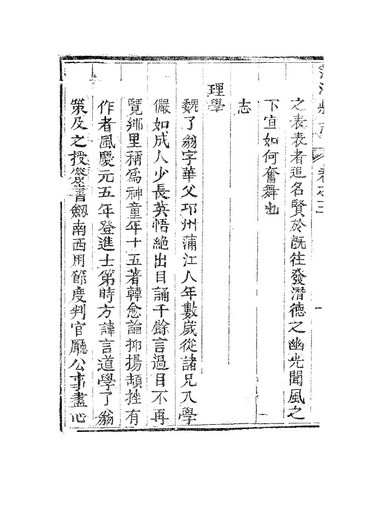 之表表者追名賢於旣往發潛德之幽光聞風之
下宜如何奮舞也
志
理學
魏了翁字華父邛州蒲江人年數歲從諸兄入學
儼如成人少長英悟絶出日誦千餘言過目不再
覽鄉里稱爲神童年十五著韓愈論抑揚頓挫有
作者風慶元五年登進士第時方諱言道學了翁
策及之授僉書劍南西川節度判官廳公事盡心